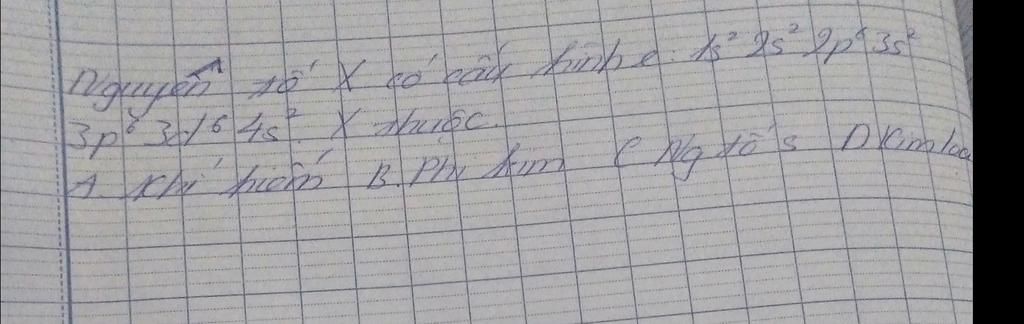 Nguyên tố X có cấu hình e: 1s² 2s² 2p⁶ 3s²
3p⁶ 3d⁶ 4s². X thuộc.
A. Khí hiếm B. Phi kim C Ng tố s D Kim loạ